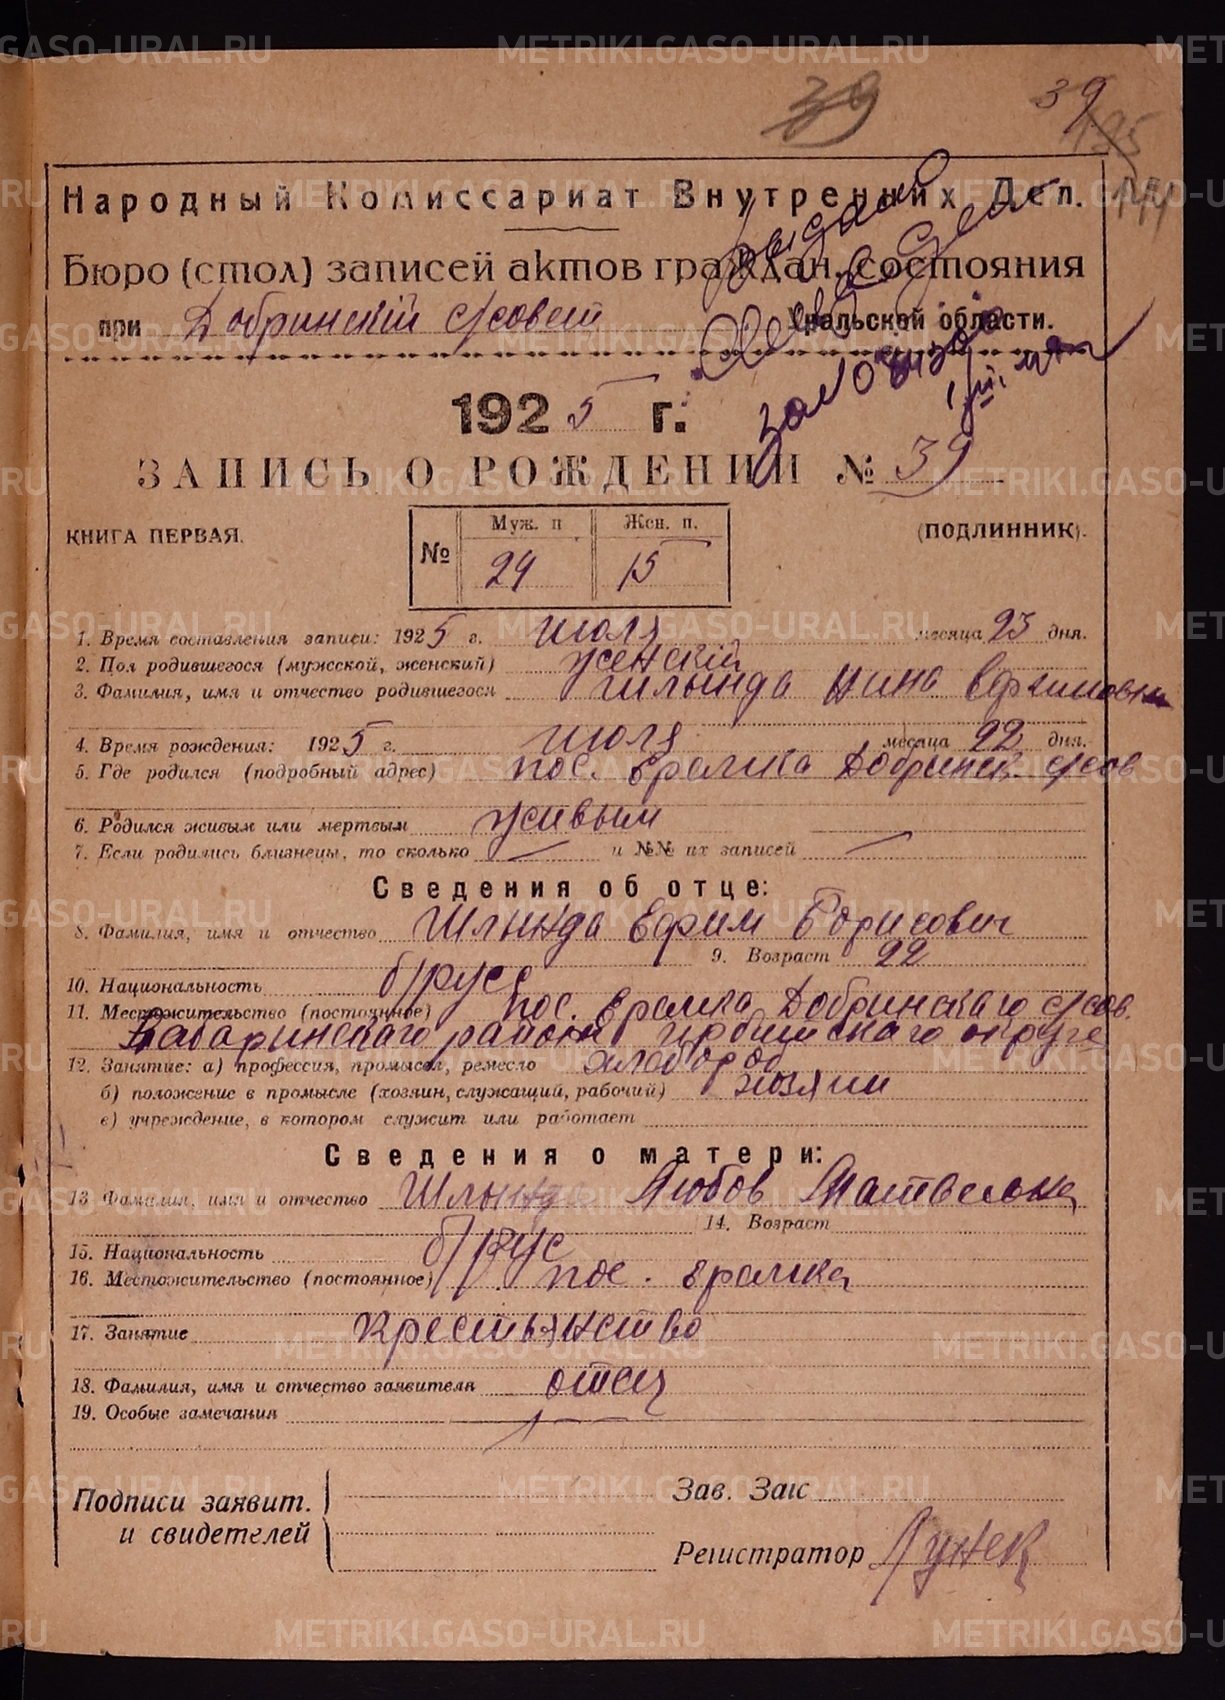 39
39
135
144
Народный Комиссариат Внутренних Дел.
Бюро (стол) записей актов граждан. состояния
при Добринскій с/совет Уральской области.
1925 г.
ЗАПИСЬ О РОЖДЕНИИ № 39
КНИГА ПЕРВАЯ. (ПОДЛИННИК).
№ Муж. п Жен. п.
24 15
1. Время составления записи: 1925 г. июля месяца 23 дня.
2. Пол родившегося (мужской, женский) женскій
3. Фамилия, имя и отчество родившегося Шлында Нина Ефимовна
4. Время рождения: 1925 г. июля месяца 22 дня.
5. Где родился (подробный адрес) пос. Еремка Добринск. с/сов
6. Родился живым или мертвым живым
7. Если родились близнецы, то сколько — и №№ их записей —
Сведения об отце:
8. Фамилия, имя и отчество Шлында Ефим Борисович
9. Возраст 22
10. Национальность б/русс
11. Местожительство (постоянное) пос. Еремка Добринскаго с/сов.
Табаринскаго района Ирбитскаго округа
12. Занятие: а) профессия, промысел, ремесло хлебороб
б) положение в промысле (хозяин, служащий, рабочий) хозяин
в) учреждение, в котором служит или работает
Сведения о матери:
13 Фамилия, имя и отчество Шлында Любов Матвеевна
14. Возраст
15. Национальность б/рус
16. Местожительство (постоянное) пос. Еремка
17. Занятие крестьянство
18. Фамилия, имя и отчество заявителя отец
19. Особые замечания —
Подписи заявит.
и свидетелей
Зав. Загс
Регистратор
METRIKI.GASO-URAL.RU